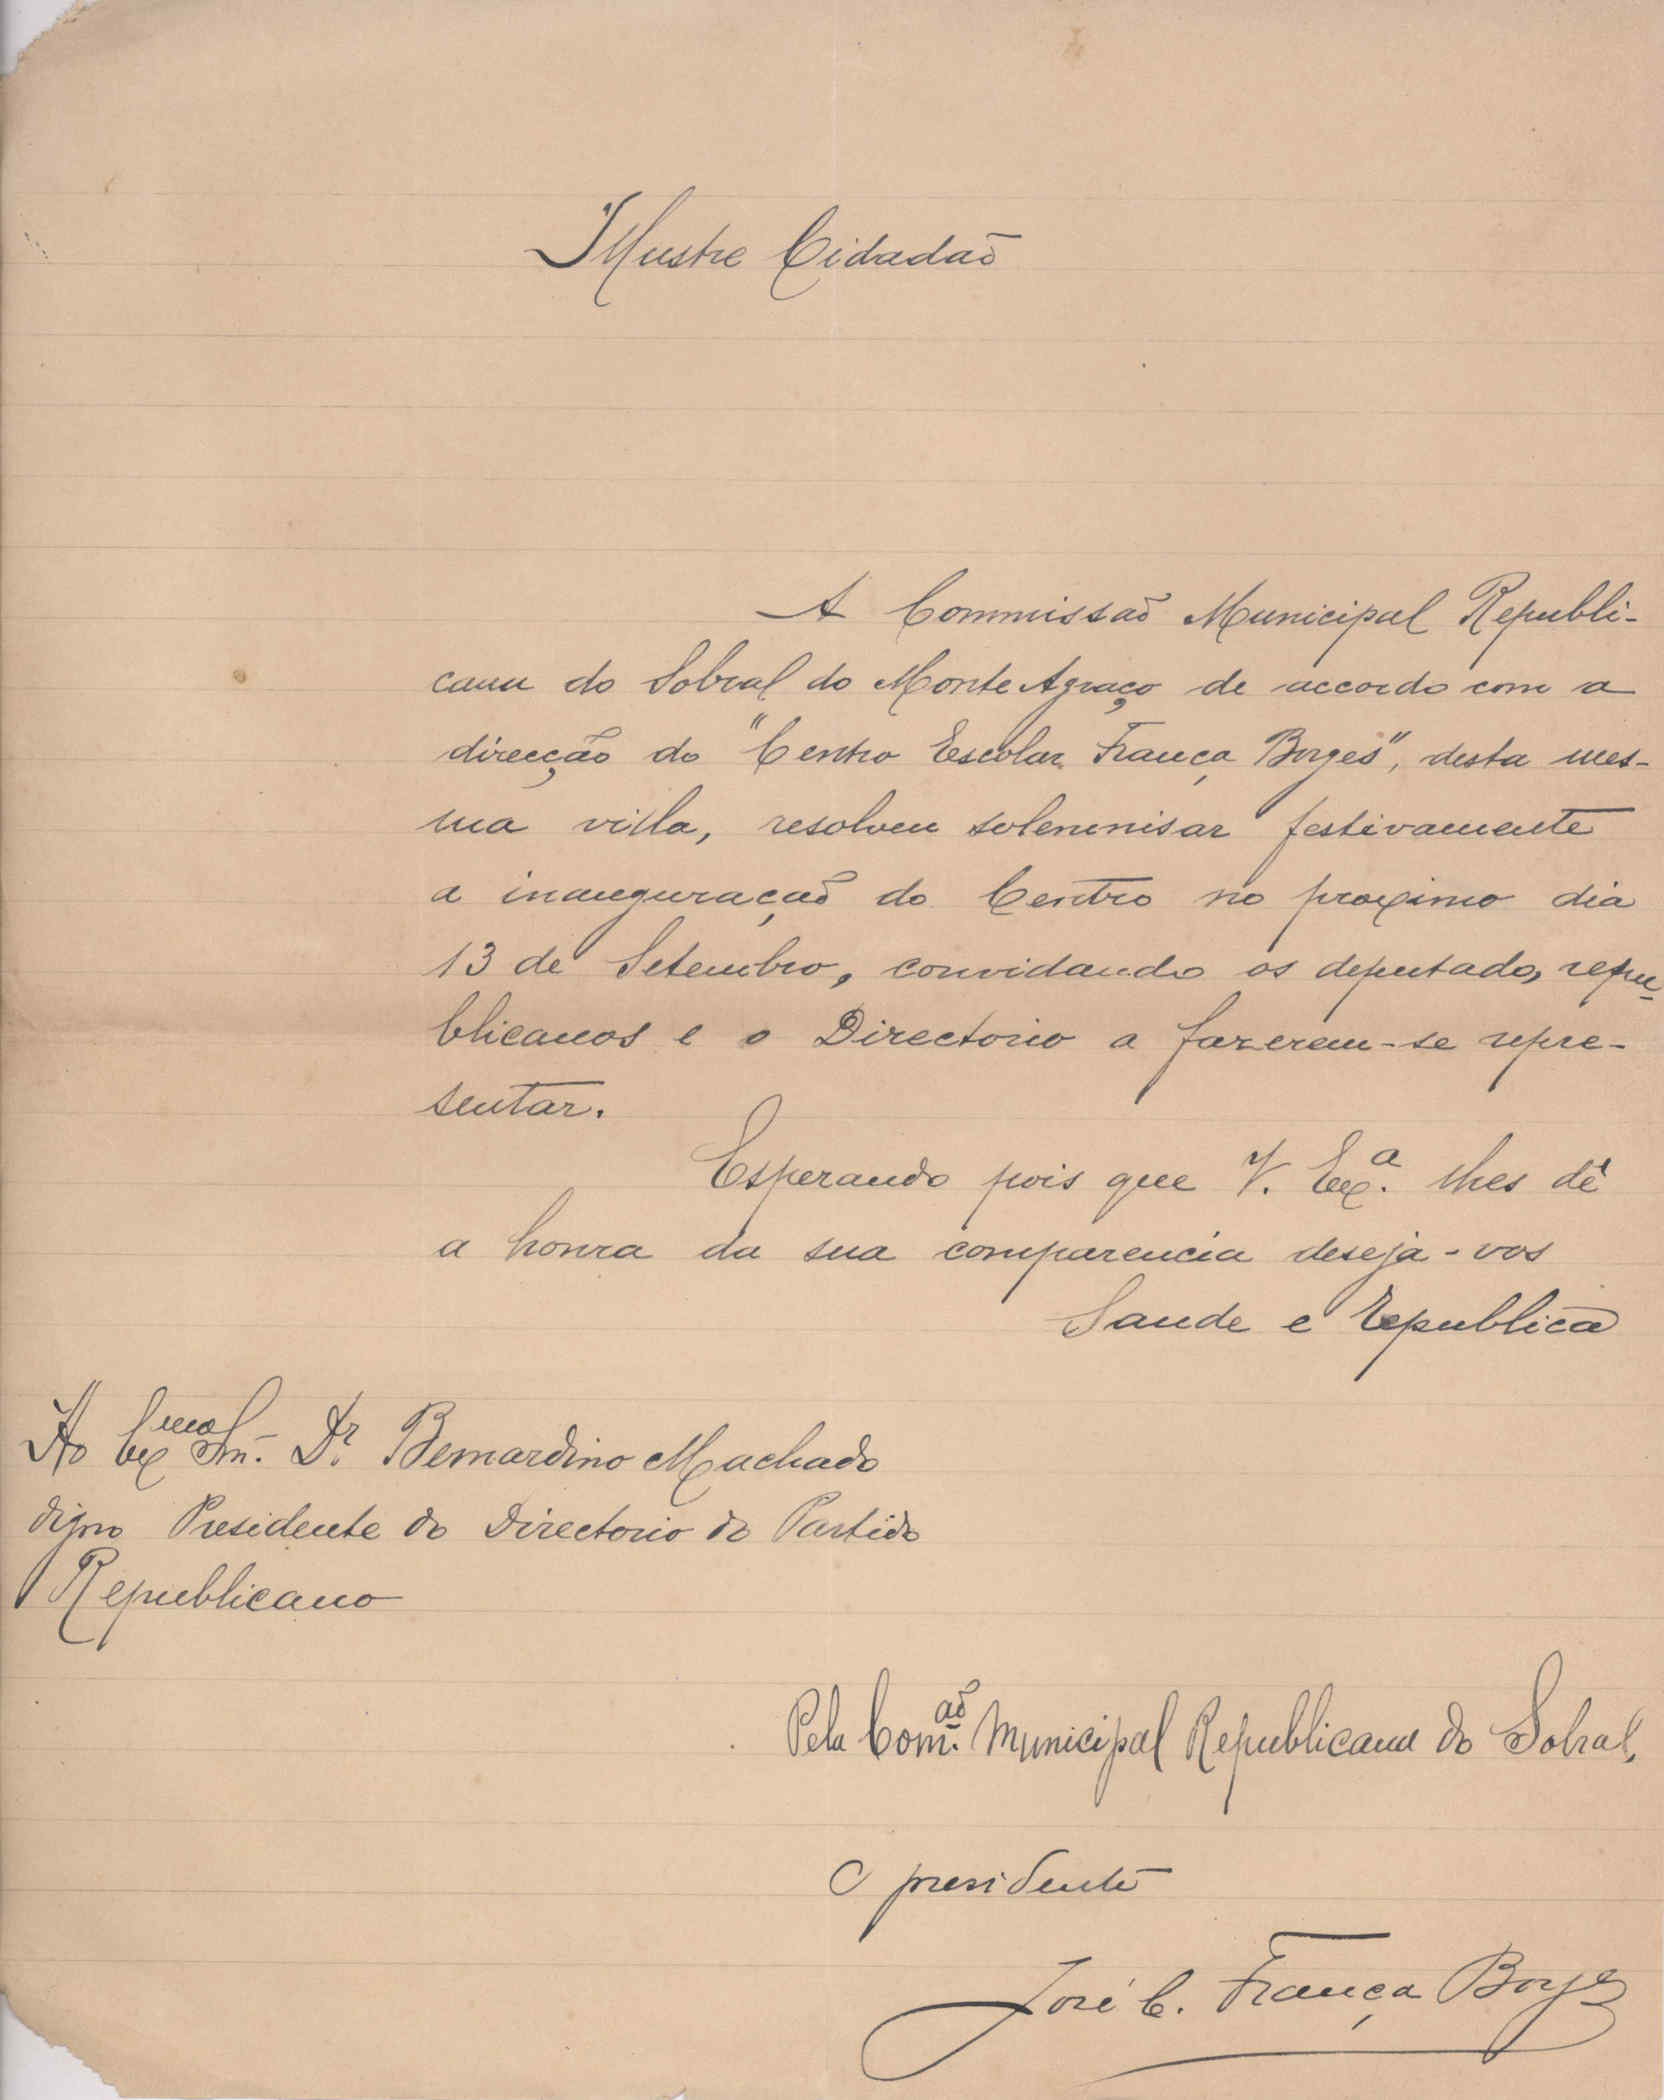 Illustre Cidadão
A Commissão Municipal Republi-
cana do Sobral do Monte Agraço de accordo com a
direcção do "Centro Escolar França Borges", desta mes-
ma villa, resolveu solemnisar festivamente
a inauguração do Centro no proximo dia
13 de Setembro, convidando os deputados repu-
blicanos e o Directorio a fazerem-se repre-
sentar.
Esperando pois que V. Exª. lhes dê
a honra da sua comparencia deseja-vos
Saude e Republica
Ao Exmo Snr. Dr. Bernardino Machado
digno Presidente do Directorio do Partido
Republicano
Pela Com.ão Municipal Republicana do Sobral,
O presidente
José C. França Borges